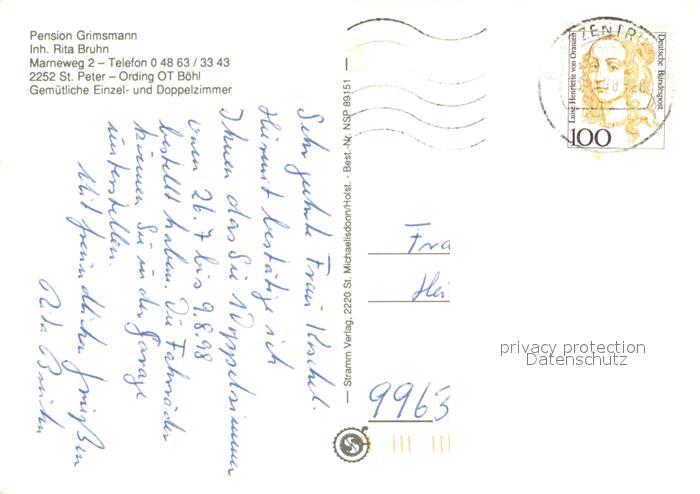 Pension Grimsmann
Inh. Rita Bruhn
Marneweg 2 – Telefon 0 48 63 / 33 43
2252 St. Peter – Ording OT Böhl
Gemütliche Einzel- und Doppelzimmer
Sehr geehrte Frau
Hiermit bestätige ich
Ihnen das Sie 1 Doppelzimmer
vom 26.7 bis 9.8.98
bestellt haben. Die Fahrräder
können Sie in der Garage
unterstellen.
Mit freundlichen Grüßen
Rita Bruhn
— Stramm Verlag, 2220 St. Michaelisdonn/Holst. - Best.-Nr. NSP 89151 —
ZENTR
Luise Henriette von Oranien
Deutsche Bundespost
100
Fra
Hei
9963
privacy protection
Datenschutz